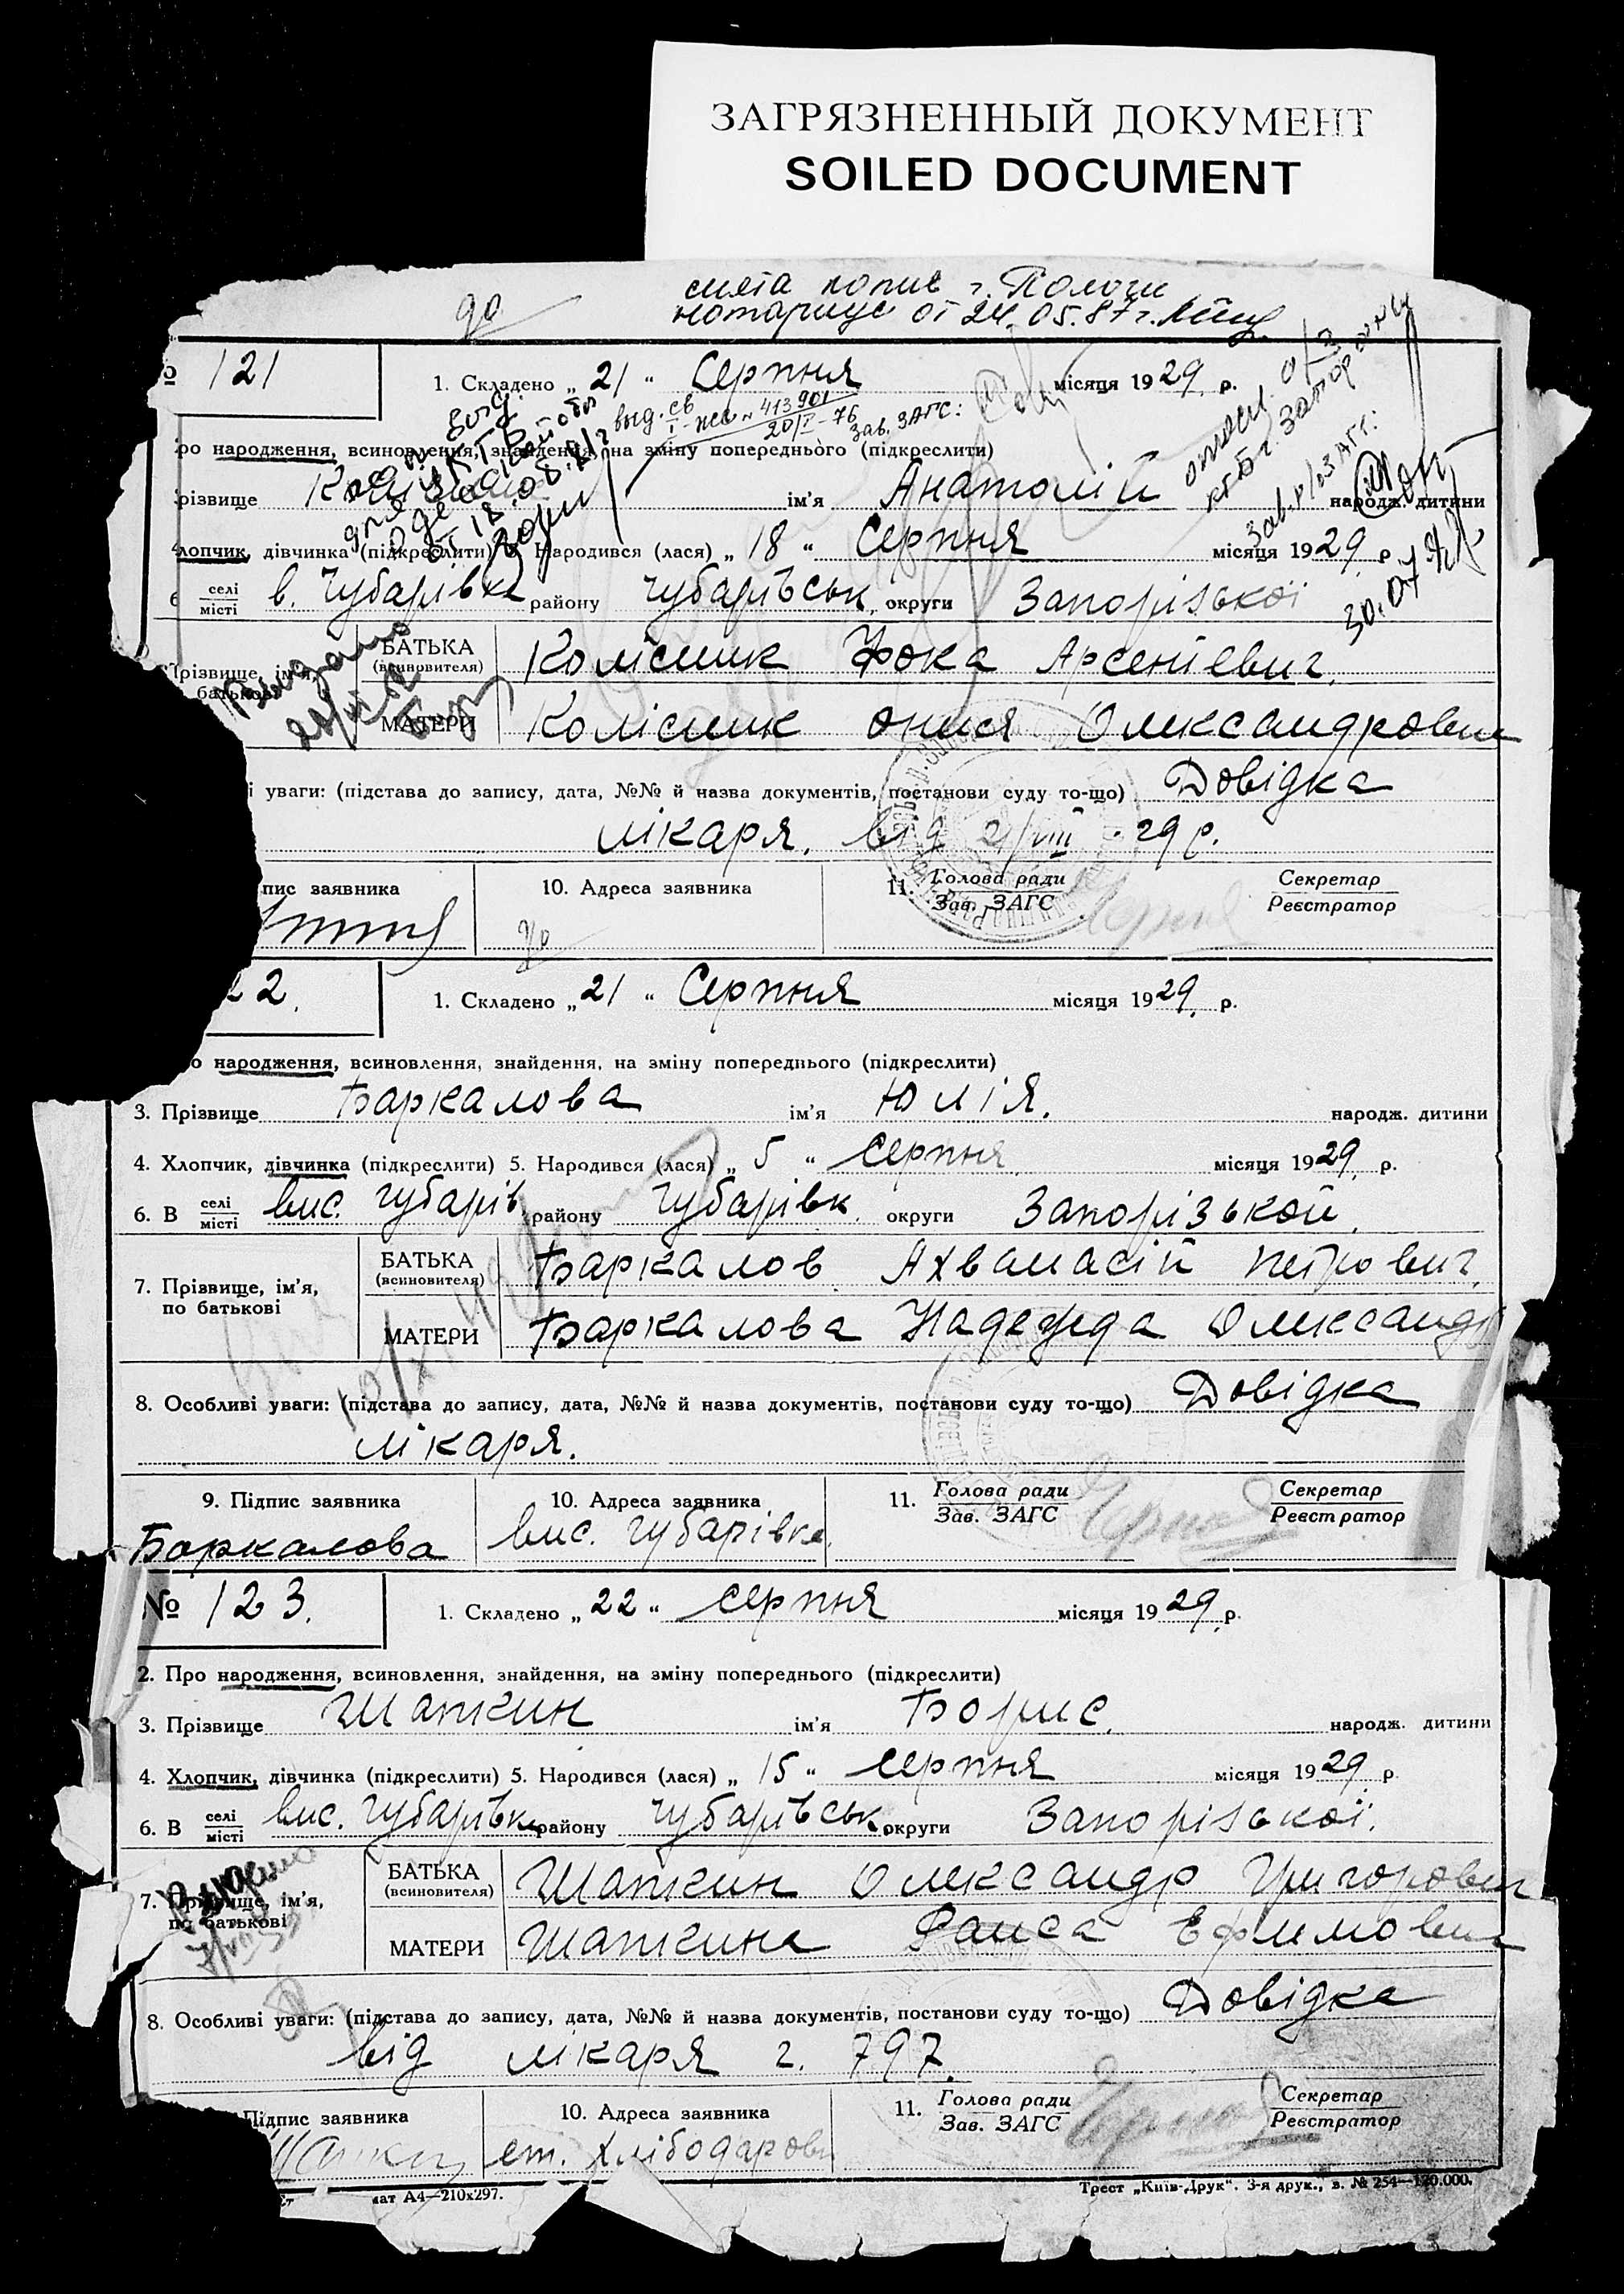 ЗАГРЯЗНЕННЫЙ ДОКУМЕНТ
SOILED DOCUMENT
снята копие г. Пологи
до нотариус от 24.05.87 г.
№ 121
1. Складено „ 21 “ Серпня місяця 1929 р.
выд. св. 413901
20/I-76 Зав. ЗАГС:
ро народження, всиновлення, знайдення, на зміну попереднього (підкреслити)
різвище ім'я Анатолій народж. дитини
лопчик, дівчинка (підкреслити) Народився (лася) „ 18 “ Серпня місяця 1929 р
селі
місті в. Чубарівка району Чубарівськ. округи Запорізької
30.07
різвище, ім'я,
батькові
БАТЬКА
(всиновителя) Колісник Фока Арсенієвич.
МАТЕРИ Колісник Онися Олександровн
і уваги: (підстава до запису, дата, №№ й назва документів, постанови суду то-що) Довідка
лікаря. від 21/VIII - 29 р.
пис заявника 10. Адреса заявника 11. Голова ради
Зав. ЗАГС Секретар
Реєстратор
22. 1. Складено „ 21 “ Серпня місяця 1929. р.
о народження, всиновлення, знайдення, на зміну попереднього (підкреслити)
3. Прізвище Баркалова ім'я Юлія. народж. дитини
4. Хлопчик, дівчинка (підкреслити) 5. Народився (лася) „ 5 “ Серпня місяця 1929. р.
6. В селі
місті вис. Чубарів. району Чубарівк. округи Запорізькой.
7. Прізвище, ім'я,
по батькові
БАТЬКА
(всиновителя) Баркалов Ахванасій Петрович.
МАТЕРИ Баркалова Надежда Олександр
8. Особливі уваги: (підстава до запису, дата, №№ й назва документів, постанови суду то-що) Довідка
лікаря.
9. Підпис заявника 10. Адреса заявника 11. Голова ради
Зав. ЗАГС Секретар
Реєстратор
Баркалова вис. Чубарівка.
№ 123. 1. Складено „ 22 “ серпня місяця 1929. р.
2. Про народження, всиновлення, знайдення, на зміну попереднього (підкреслити)
3. Прізвище Шапкин ім'я Борис. народж. дитини
4. Хлопчик, дівчинка (підкреслити) 5. Народився (лася) „ 15 “ серпня місяця 1929 р
6. В селі
місті вис. Чубарівк. району Чубарівськ. округи Запорізької.
7. Прізвище, ім'я,
по батькові
БАТЬКА
(всиновителя) Шапкин Олександр Григорович
МАТЕРИ Шапкина Раиса Ефимовна
8. Особливі уваги: (підстава до запису, дата, №№ й назва документів, постанови суду то-що) Довідка
від лікаря г. 797.
Підпис заявника 10. Адреса заявника 11. Голова ради
Зав. ЗАГС Секретар
Реєстратор
ст. Хлібодаровк
мат А4—210х297. Трест „Київ-Друк“. 3-я друк., з. № 254—120.000.